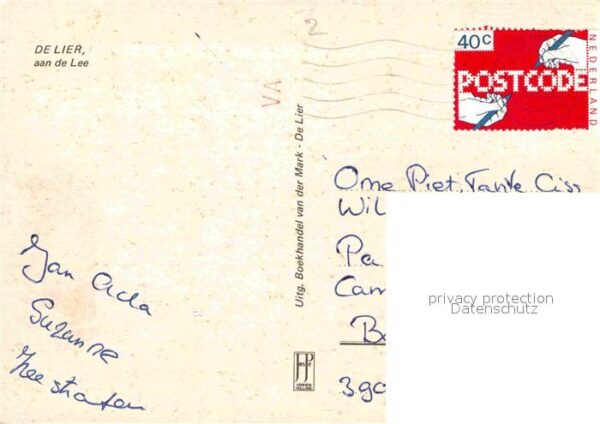 DE LIER,
aan de Lee
2
VA
40c
POSTCODE
NEDERLAND
Uitg. Boekhandel van der Mark - De Lier
Ome Piet, Tante Ciss
Wil
Pa
Cam
Be
390
privacy protection
Datenschutz
Jan Ada
Suzanne
JosPé
ARNHEM
HOLLAND